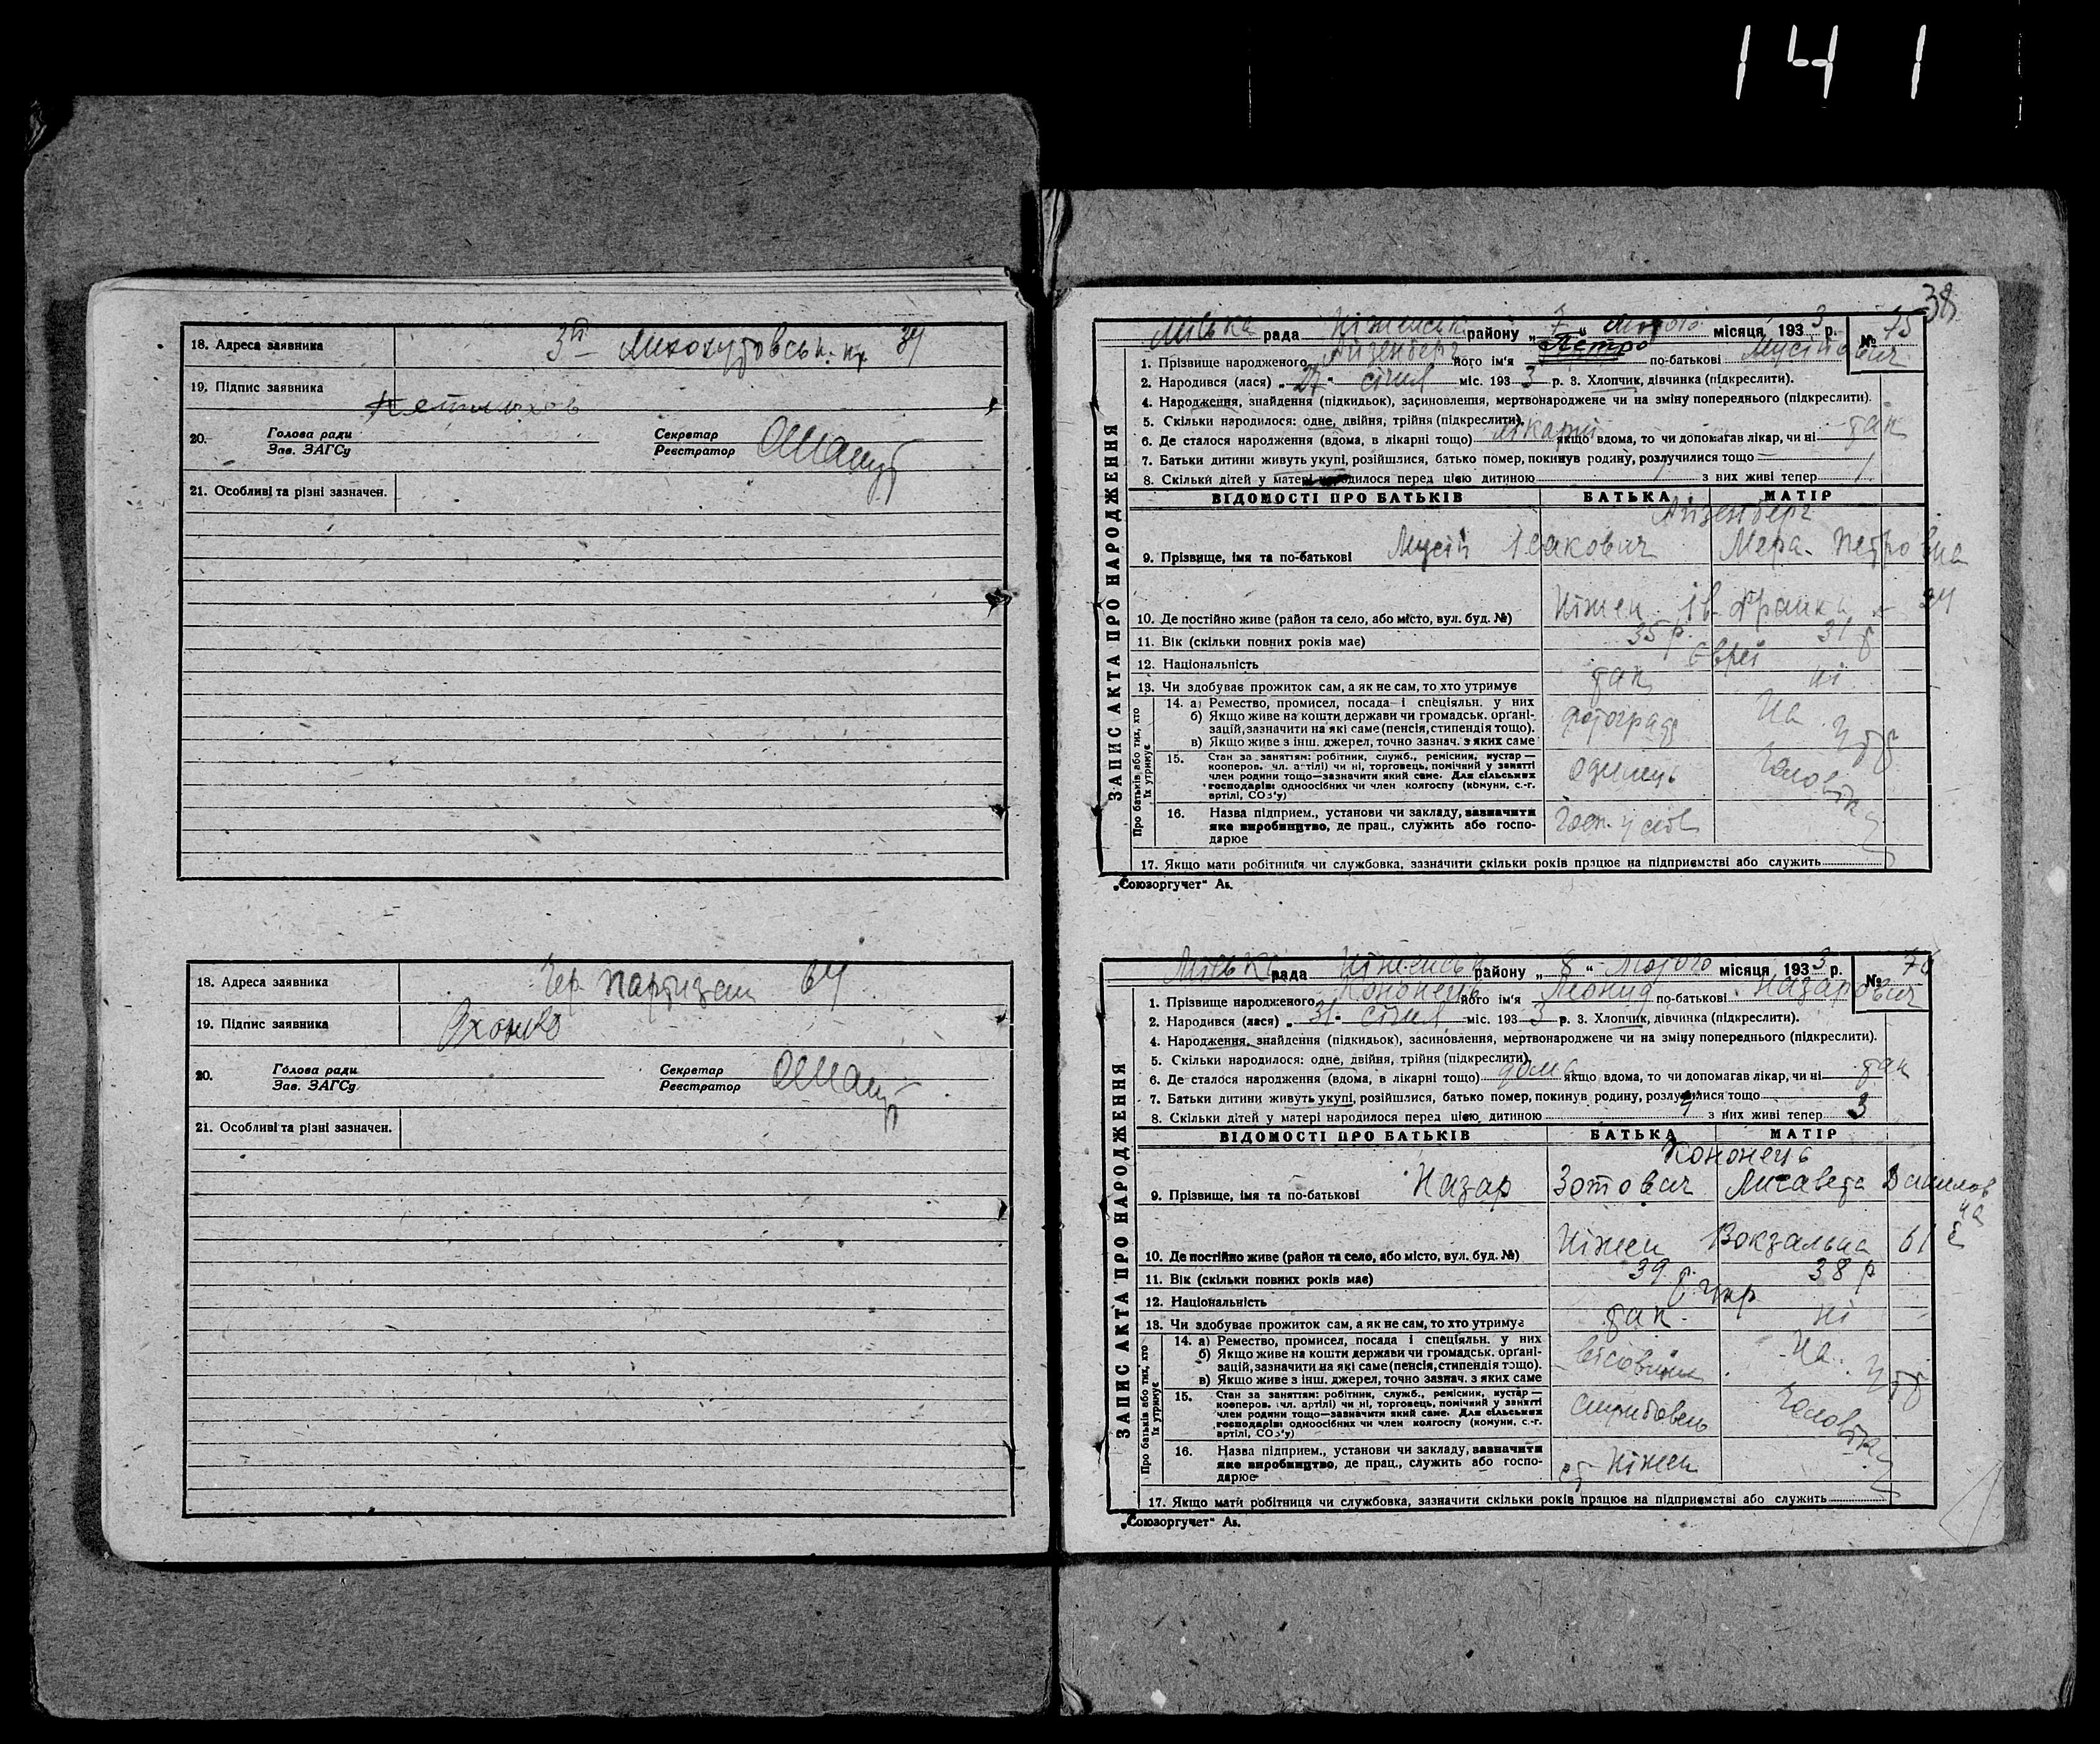 141
18. Адреса заявника 34
19. Підпис заявника
20. Голова ради Секретар
Зав. ЗАГСу Реєстратор
21. Особливі та різні зазначен.
18. Адреса заявника Чер партизан 64
19. Підпис заявника
20. Голова ради Секретар
Зав. ЗАГСу Реєстратор
21. Особливі та різні зазначен.
38
Міська рада Ніженськ району „ 7 “ лютого місяця 1933 р. № 75
1. Прізвище народженого Айзенберг його ім'я Петро по-батькові Мусійович
2. Народився (лася) „ 27 “ січня міс. 1933 р. 3. Хлопчик, дівчинка (підкреслити).
4. Народження, знайдення (підкидьок), засиновлення, мертвонароджене чи на зміну попереднього (підкреслити).
5. Скільки народилося: одне, двійня, трійня (підкреслити)
6. Де сталося народження (вдома, в лікарні тощо) лікарні якщо вдома, то чи допомагав лікар, чи ні так
7. Батьки дитини живуть укупі, розійшлися, батько помер, покинув родину, розлучилися тощо
8. Скільки дітей у матері народилося перед цією дитиною 1 з них живі тепер 1
ЗАПИС АКТА ПРО НАРОДЖЕННЯ
ВІДОМОСТІ ПРО БАТЬКІВ БАТЬКА МАТІР
Айзенберг
9. Прізвище, імя та по-батькові Мусій Ісакович Мера Петровна
10. Де постійно живе (район та село, або місто, вул. буд. №) Ніжен Ів Франка 34
11. Вік (скільки повних років має) 35 р. 31 р
12. Національність Євреї
13. Чи здобуває прожиток сам, а як не сам, то хто утримує так ні
Про батьків або тих, хто їх утримує
14. а) Ремество, промисел, посада і спеціяльн. у них фотограф На утр
б) Якщо живе на кошти держави чи громадськ. органі-
зацій, зазначити на які саме (пенсія, стипендія тощо).
в) Якщо живе з інш. джерел, точно зазнач. з яких саме
15. Стан за заняттям: робітник, служб., ремісник, кустар — одинець чоловіка
кооперов. чл. артілі) чи ні, торговець, помічний у занятті
член родини тощо—зазначити який саме. Для сільських
господарів: одноосібних чи член колгоспу (комуни, с.-г.
артілі, СОЗ'у)
16. Назва підприєм., установи чи закладу, зазначити
яке виробництво, де прац., служить або госпо-
дарює
17. Якщо мати робітниця чи службовка, зазначити скільки років працює на підприємстві або служить
„Союзоргучет“ Ав.
Міська рада Ніженськ району „ 8 “ лютого місяця 1933 р. № 76
1. Прізвище народженого Кононець його ім'я Леонид по-батькові Назарович
2. Народився (лася) „ 31 “ січня міс. 1933 р. 3. Хлопчик, дівчинка (підкреслити).
4. Народження, знайдення (підкидьок), засиновлення, мертвонароджене чи на зміну попереднього (підкреслити).
5. Скільки народилося: одне, двійня, трійня (підкреслити)
6. Де сталося народження (вдома, в лікарні тощо) дома якщо вдома, то чи допомагав лікар, чи ні так
7. Батьки дитини живуть укупі, розійшлися, батько помер, покинув родину, розлучилися тощо
8. Скільки дітей у матері народилося перед цією дитиною 4 з них живі тепер 3
ЗАПИС АКТА ПРО НАРОДЖЕННЯ
ВІДОМОСТІ ПРО БАТЬКІВ БАТЬКА МАТІР
Кононець
9. Прізвище, імя та по-батькові Назар Зотович Лисавета Даниловна
10. Де постійно живе (район та село, або місто, вул. буд. №) Ніжен Вокзальна 61
11. Вік (скільки повних років має) 39 р. 38 р
12. Національність Укр
13. Чи здобуває прожиток сам, а як не сам, то хто утримує так ні
Про батьків або тих, хто їх утримує
14. а) Ремество, промисел, посада і спеціяльн. у них На утр
б) Якщо живе на кошти держави чи громадськ. органі-
зацій, зазначити на які саме (пенсія, стипендія тощо).
в) Якщо живе з інш. джерел, точно зазнач. з яких саме
15. Стан за заняттям: робітник, служб., ремісник, кустар — службовець чоловіка
кооперов. чл. артілі) чи ні, торговець, помічний у занятті
член родини тощо—зазначити який саме. Для сільських
господарів: одноосібних чи член колгоспу (комуни, с.-г.
артілі, СОЗ'у)
16. Назва підприєм., установи чи закладу, зазначити ст Ніжен
яке виробництво, де прац., служить або госпо-
дарює
17. Якщо мати робітниця чи службовка, зазначити скільки років працює на підприємстві або служить
„Союзоргучет“ Ав.